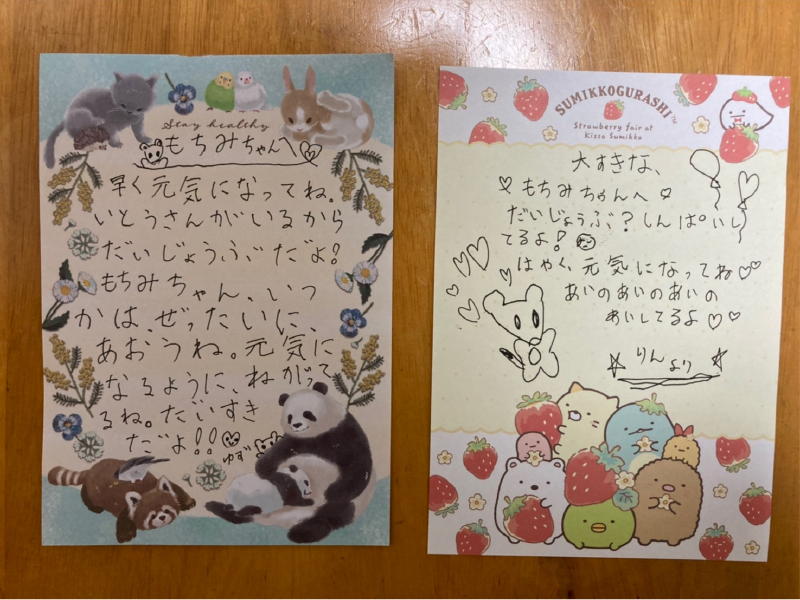 Stay healthy
もちみちゃんへ
早く元気になってね。
いとうさんがいるから
だいじょうぶだよ!
もちみちゃん、いつ
かは、ぜったいに、
あおうね。元気に
なるように、ねがって
るね。だいすき
だよ!!
ゆず
SUMIKKOGURASHI™
Strawberry fair at
Kissa Sumikko
大すきな、
もちみちゃんへ
だいじょうぶ?しんぱいし
てるよ!
はやく、元気になってね
あいのあいのあいの
あいしてるよ
りんより